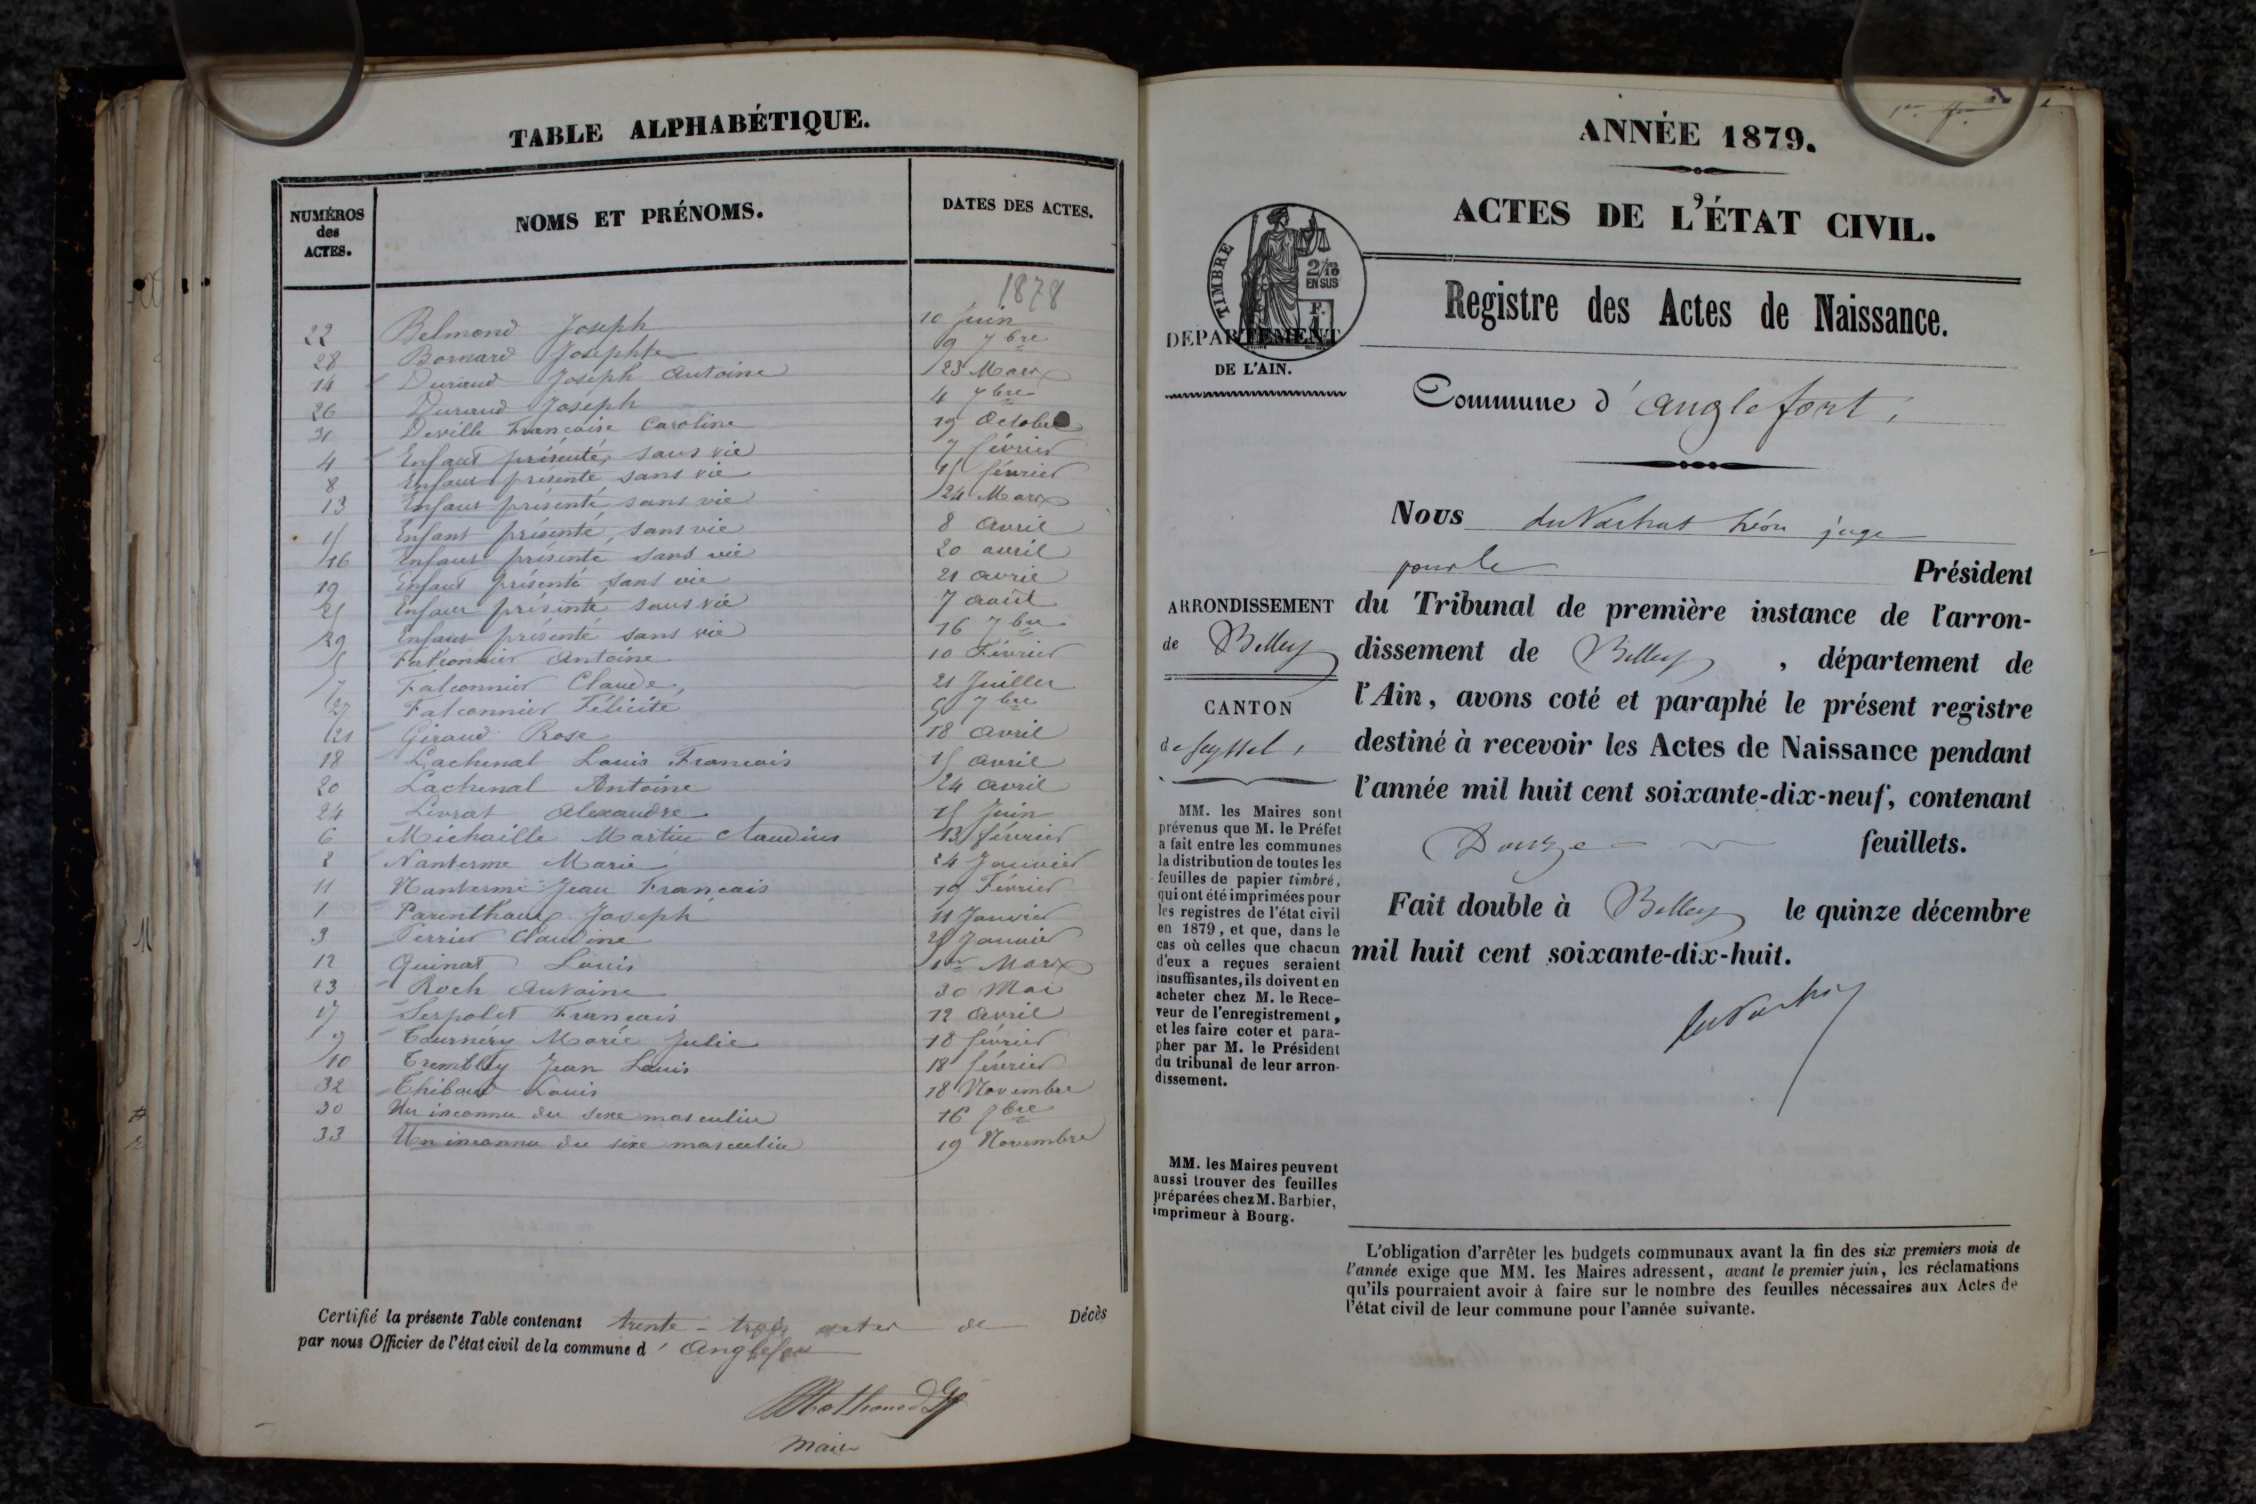 TABLE ALPHABÉTIQUE.
NUMÉROS des ACTES.
NOMS ET PRÉNOMS.
DATES DES ACTES.
1878
22 Belmond Joseph 10 Juin
28 Bornard Josephte 9 7bre
14 Durand Joseph Antoine 23 Mars
26 Durand Joseph 4 7bre
31 Deville Françoise Caroline 19 Octobre
4 Enfant présenté sans vie 7 février
8 Enfant présenté sans vie 15 février
13 Enfant présenté sans vie 24 Mars
15 Enfant présenté sans vie 8 avril
16 Enfant présenté sans vie 20 avril
19 Enfant présenté sans vie 21 avril
25 Enfant présenté sans vie 7 août
29 Enfant présenté sans vie 16 7bre
5 Falconnier Antoine 10 Février
7 Falconnier Claude 21 Juillet
27 Falconnier Félicité 5 7bre
21 Giraud Rose 18 avril
18 Lachenal Louis François 15 avril
20 Lachenal Antoine 24 avril
24 Livrat Alexandre 15 Juin
6 Michaille Martin Claudius 13 février
2 Nanterme Marie 24 Janvier
11 Nanterme Jean Français 19 Février
1 Parenthoux Joseph 11 Janvier
3 Perrier Claudine 25 Janvier
12 Quinat Louis 1er Mars
23 Roch Antoine 30 Mai
17 Serpolet Français 12 avril
9 Tournéry Marie Julie 18 février
10 Trembley Jean Louis 18 février
32 Thibaud Louis 18 Novembre
30 Un inconnu du sexe masculin 16 7bre
33 Un inconnu du sexe masculin 19 Novembre
Certifié la présente Table contenant trente-trois actes de Décès
par nous Officier de l'état civil de la commune d'Anglefort
Maire
ANNÉE 1879.
ACTES DE L'ÉTAT CIVIL.
TIMBRE
2/10
EN SUS
F.
1
DÉPARTEMENT
DE L'AIN.
Registre des Actes de Naissance.
Commune d'Anglefort
ARRONDISSEMENT
de Belley
CANTON
de Seyssel
MM. les Maires sont
prévenus que M. le Préfet
a fait entre les communes
la distribution de toutes les
feuilles de papier timbré,
qui ont été imprimées pour
les registres de l'état civil
en 1879, et que, dans le
cas où celles que chacun
d'eux a reçues seraient
insuffisantes, ils doivent en
acheter chez M. le Rece-
veur de l'enregistrement,
et les faire coter et para-
pher par M. le Président
du tribunal de leur arron-
dissement.
MM. les Maires peuvent
aussi trouver des feuilles
préparées chez M. Barbier,
imprimeur à Bourg.
Nous Léon juge
pour le Président
du Tribunal de première instance de l'arron-
dissement de Belley, département de
l'Ain, avons coté et paraphé le présent registre
destiné à recevoir les Actes de Naissance pendant
l'année mil huit cent soixante-dix-neuf, contenant
Douze feuillets.
Fait double à Belley le quinze décembre
mil huit cent soixante-dix-huit.
L'obligation d'arrêter les budgets communaux avant la fin des six premiers mois de
l'année exige que MM. les Maires adressent, avant le premier juin, les réclamations
qu'ils pourraient avoir à faire sur le nombre des feuilles nécessaires aux Actes de
l'état civil de leur commune pour l'année suivante.